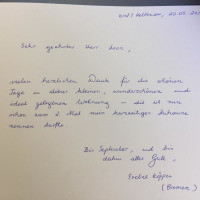 Sehr geehrter Herr
vielen herzlichen Dank für die schönen
Tage in dieser kleinen, wunderschönen und
ideal gelegenen Wohnung – die ich nun
schon zum 2. Mal mein kurzzeitiges Zuhause
nennen durfte.
Bis September, und bis
dahin alles Gute,
(Bremen)